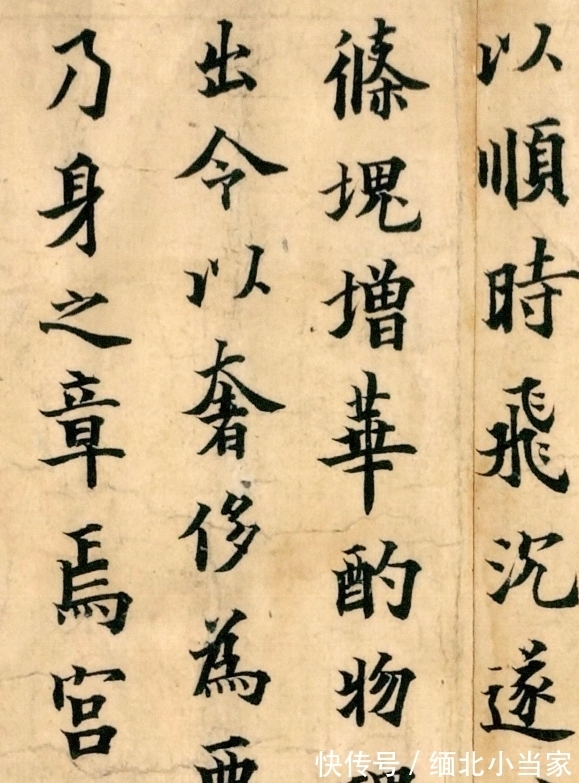 以順時飛沉遂
塊增華酌物
出令以奢侈為
乃身之章焉宮
快传号 / 缅北小当家